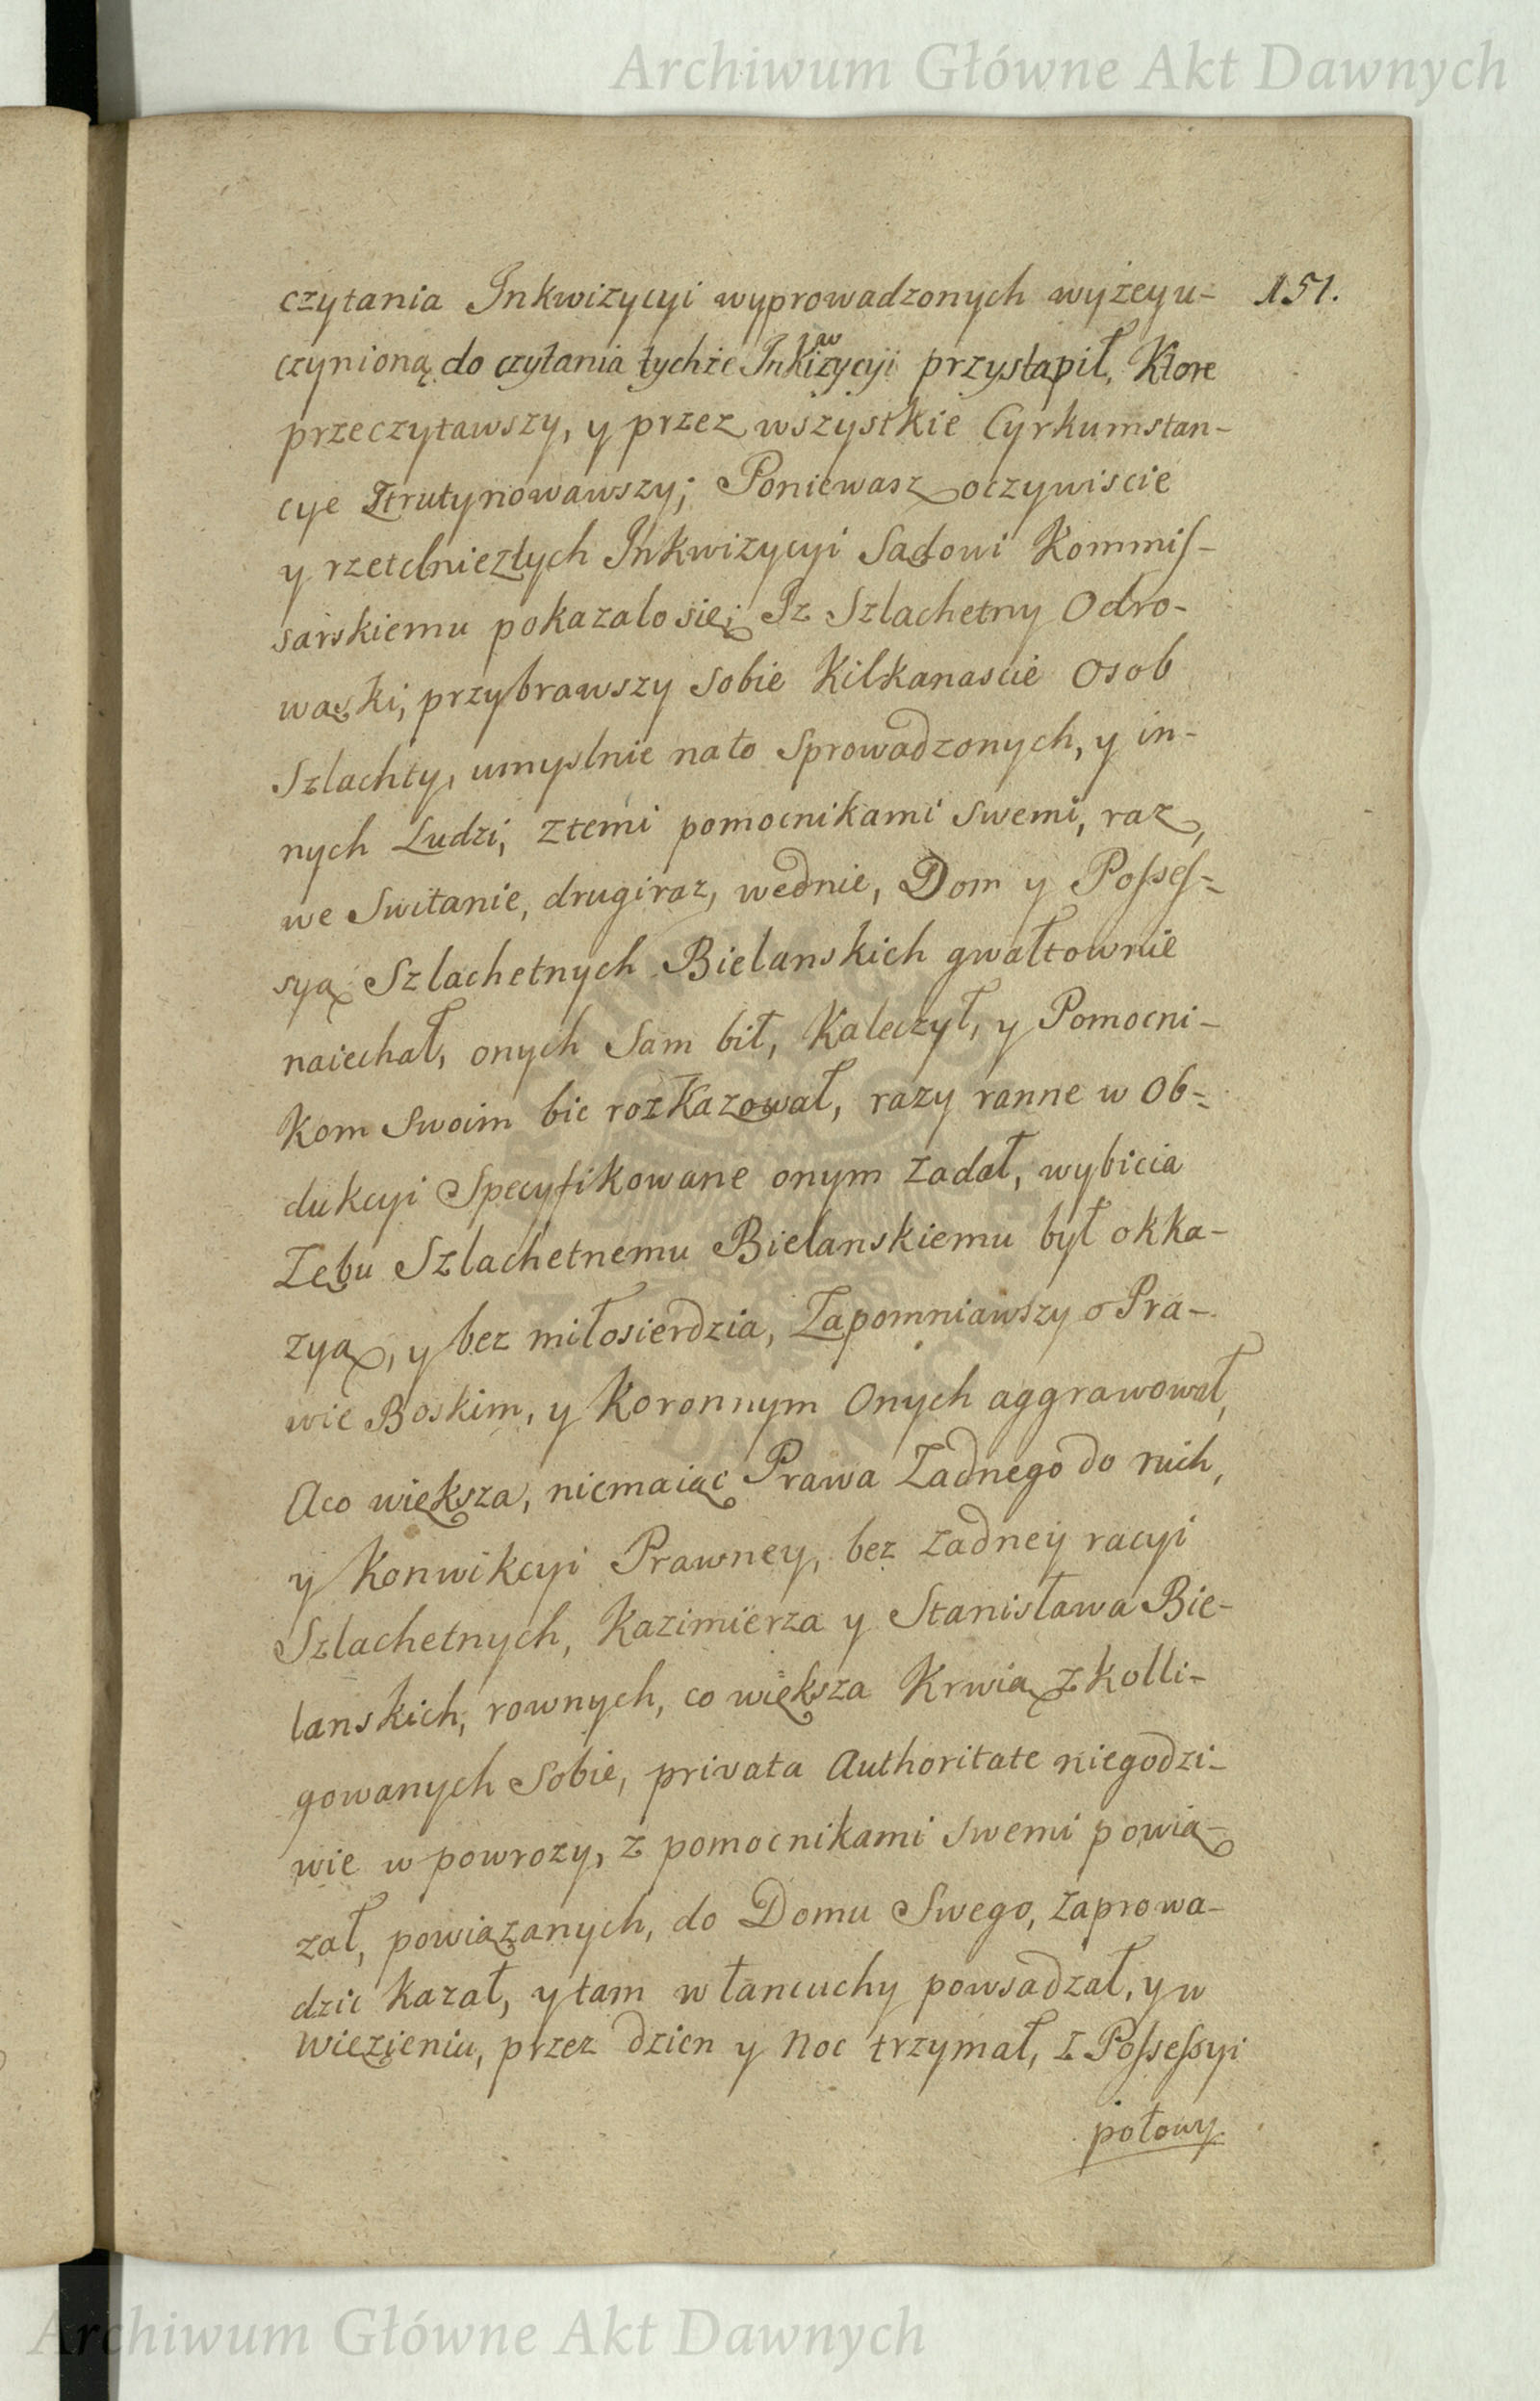 Archiwum Główne Akt Dawnych
czytania Inkwizycyi wyprowadzonych wyżey u- 151.
czynioną do czytania tychże Inkwizycyi przystąpił, Ktore
przeczytawszy, y przez wszystkie Cyrkumstan-
cye Ztrutynowawszy; Poniewasz oczywiscie
y rzetelnie ztych Inkwizycyi Sądowi Kommis-
sarskiemu pokazalo się; Iz Szlachetny Odro-
wąski, przybrawszy sobie Kilkanascie Osob
Szlachty, umyslnie nato sprowadzonych, y in-
nych Ludzi, ztemi pomocnikami swemi, raz,
we switanie, drugi raz, wednie, Dom y Posses=
syą Szlachetnych Bielanskich gwałtownie
naiechał, onych sam bił, Kaleczył, y Pomocni-
kom swoim bic rozkazował, razy ranne w Ob=
dukcyi Specyfikowane onym zadał, wybicia
Zębu Szlachetnemu Bielanskiemu był okka-
zyą, y bez miłosierdzia, Zapomniawszy o Pra-
wie Boskim, y Koronnym Onych aggrawował,
Aco większa, niemaiąc Prawa Zadnego do nich,
y Konwikcyi Prawney, bez zadney racyi
Szlachetnych, Kazimierza y Stanisława Bie-
lanskich, rownych, co większa Krwią zkolli-
gowanych sobie, privata Authoritate niegodzi-
wie w powrozy, z pomocnikami swemi powią-
zał, powiązanych, do Domu Swego, zaprowa-
dzic kazał, y tam w łancuchy powsadzał, y w
więzieniu, przez dzien y noc trzymał, z Possessyi
połowy.
Archiwum Główne Akt Dawnych